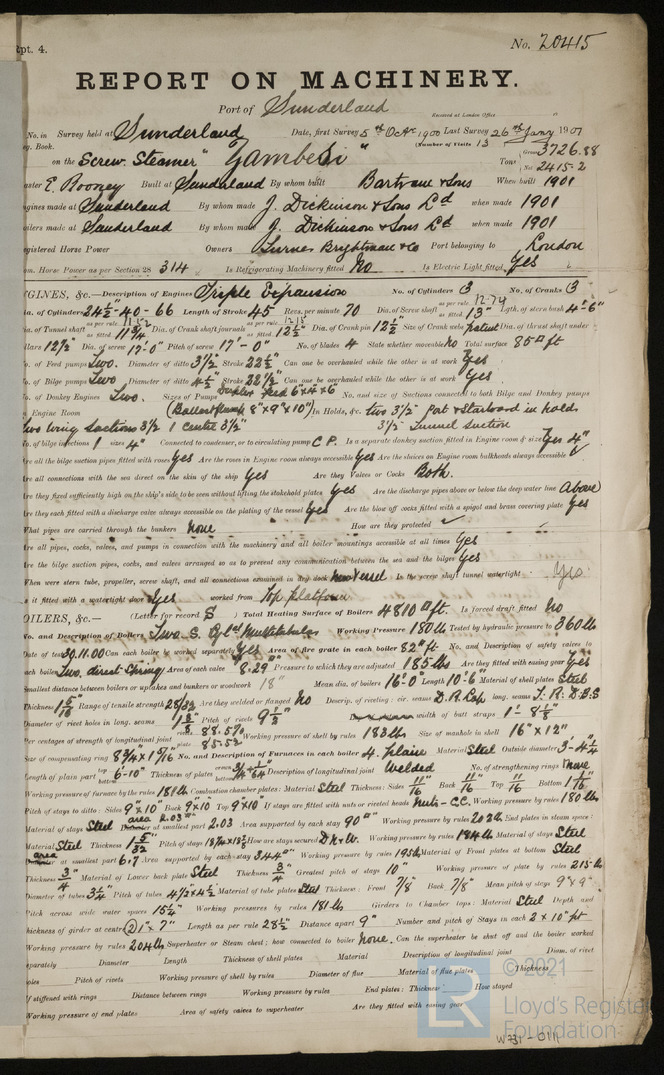 Rpt. 4.
No. 20415
REPORT ON MACHINERY.
Port of Sunderland
Received at London Office
No. in Survey held at Sunderland Date, first Survey 5th Octr 1900 Last Survey 26th Jany 1901
g. Book. (Number of Visits 13
on the Screw Steamer "Zambesi" Tons Gross 3726.88 Net 2415.2
aster E. Rooney Built at Sunderland By whom built Bartram & Sons When built 1901
ngines made at Sunderland By whom made J. Dickinson & Sons Ld when made 1901
oilers made at Sunderland By whom made J. Dickinson & Sons Ld when made 1901
egistered Horse Power Owners Turner Brightman & Co Port belonging to London
om. Horse Power as per Section 28 314 Is Refrigerating Machinery fitted No Is Electric Light fitted Yes
NGINES, &c.—Description of Engines Triple Expansion No. of Cylinders 3 No. of Cranks 3
ia. of Cylinders 24½"-40-66 Length of Stroke 45 Revs. per minute 70 Dia. of Screw shaft as per rule 12.74 as fitted 13" Lgth. of stern bush 4'-6"
ia. of Tunnel shaft as per rule 11.52 as fitted 11¾" Dia. of Crank shaft journals as per rule 12.15 as fitted 12½" Dia. of Crank pin 12½" Size of Crank webs patent Dia. of thrust shaft under
ollars 12½" Dia. of screw 17'-0" Pitch of screw 17'-0" No. of blades 4 State whether moveable No Total surface 85 □ ft
o. of Feed pumps Two. Diameter of ditto 3½" Stroke 22½" Can one be overhauled while the other is at work Yes
o. of Bilge pumps Two Diameter of ditto 4½" Stroke 22½" Can one be overhauled while the other is at work Yes
o. of Donkey Engines Two. Sizes of Pumps Duplex Feed 6x4x6 No. and size of Suctions connected to both Bilge and Donkey pumps
Engine Room (Ballast pump 8"x9"x10") In Holds, &c. two 3½" Port & Starboard in holds
two wing suctions 3½ 1 centre 3½" 3½" Tunnel Suction
o. of bilge injections 1 sizes 4" Connected to condenser, or to circulating pump C.P. Is a separate donkey suction fitted in Engine room & size Yes 4"
re all the bilge suction pipes fitted with roses Yes Are the roses in Engine room always accessible Yes Are the sluices on Engine room bulkheads always accessible ✓
re all connections with the sea direct on the skin of the ship Yes Are they Valves or Cocks Both.
re they fixed sufficiently high on the ship's side to be seen without lifting the stokehold plates Yes Are the discharge pipes above or below the deep water line Above
re they each fitted with a discharge valve always accessible on the plating of the vessel Yes Are the blow off cocks fitted with a spigot and brass covering plate Yes
What pipes are carried through the bunkers None How are they protected ✓
re all pipes, cocks, valves, and pumps in connection with the machinery and all boiler mountings accessible at all times Yes
re the bilge suction pipes, cocks, and valves arranged so as to prevent any communication between the sea and the bilges Yes
When were stern tube, propeller, screw shaft, and all connections examined in dry dock New Vessel Is the screw shaft tunnel watertight Yes
s it fitted with a watertight door Yes worked from Top platform
OILERS, &c.— (Letter for record S ) Total Heating Surface of Boilers 4810 □ ft. Is forced draft fitted No
No. and Description of Boilers Two S. Cyl. Multitubular Working Pressure 180 lb Tested by hydraulic pressure to 360 lb
Date of test 30.11.00 Can each boiler be worked separately Yes Area of fire grate in each boiler 82 □ ft No. and Description of safety valves to
each boiler Two. direct Spring Area of each valve 8.29 □" Pressure to which they are adjusted 185 lb Are they fitted with easing gear Yes
Smallest distance between boilers or uptakes and bunkers or woodwork 18" Mean dia. of boilers 16'-0" Length 10'-6" Material of shell plates Steel
Thickness 1 5/16 Range of tensile strength 28/32 Are they welded or flanged No Descrip. of riveting: cir. seams D.R. Lap long. seams T.R: D.B.S
Diameter of rivet holes in long. seams 1 3/8 Pitch of rivets 9½" width of butt straps 1'-8⅛"
Per centages of strength of longitudinal joint rivets 88.57 plate 85.53 Working pressure of shell by rules 183 lb Size of manhole in shell 16" x 12"
Size of compensating ring 8¾ x 1 5/16 No. and Description of Furnaces in each boiler 4. plain Material Steel Outside diameter 3'-4¾
Length of plain part top 6'-10" bottom Thickness of plates Description of longitudinal joint Welded No. of strengthening rings None
Working pressure of furnace by the rules 181 lb Combustion chamber plates: Material Steel Thickness: Sides 11/16 Back 11/16 Top 11/16 Bottom 1 1/16
Pitch of stays to ditto: Sides 9"x10" Back 9"x10 Top 9"x10" If stays are fitted with nuts or riveted heads Nuts-CC. Working pressure by rules 180 lb
Material of stays Steel area at smallest part 2.03 Area supported by each stay 90 □" Working pressure by rules 202 lb End plates in steam space:
Material Steel Thickness 1 5/32 Pitch of stays How are stays secured D.N.&W. Working pressure by rules 184 lb Material of stays Steel
area at smallest part 6.7 Area supported by each stay 344 □" Working pressure by rules 195 lb Material of Front plates at bottom Steel
Thickness 3/4 Material of Lower back plate Steel Thickness 3/4 Greatest pitch of stays 10" Working pressure of plate by rules 215 lb
Diameter of tubes 3¼" Pitch of tubes 4½ x 4½ Material of tube plates Steel Thickness: Front 7/8" Back 7/8" Mean pitch of stays 9"x9"
Pitch across wide water spaces 15¼" Working pressures by rules 181 lb Girders to Chamber tops: Material Steel Depth and
hickness of girder at centre (2) 1" x 7" Length as per rule 28½" Distance apart 9" Number and pitch of Stays in each 2 x 10" pt
Working pressure by rules 204 lb Superheater or Steam chest; how connected to boiler None. Can the superheater be shut off and the boiler worked
eparately Diameter Length Thickness of shell plates Material Description of longitudinal joint Diam. of rivet
oles Pitch of rivets Working pressure of shell by rules Diameter of flue Material of flue plates Thickness
f stiffened with rings Distance between rings Working pressure by rules End plates: Thickness How stayed
Working pressure of end plates Area of safety valves to superheater Are they fitted with easing gear
© 2021
Lloyd's Register
Foundation
W731-0111